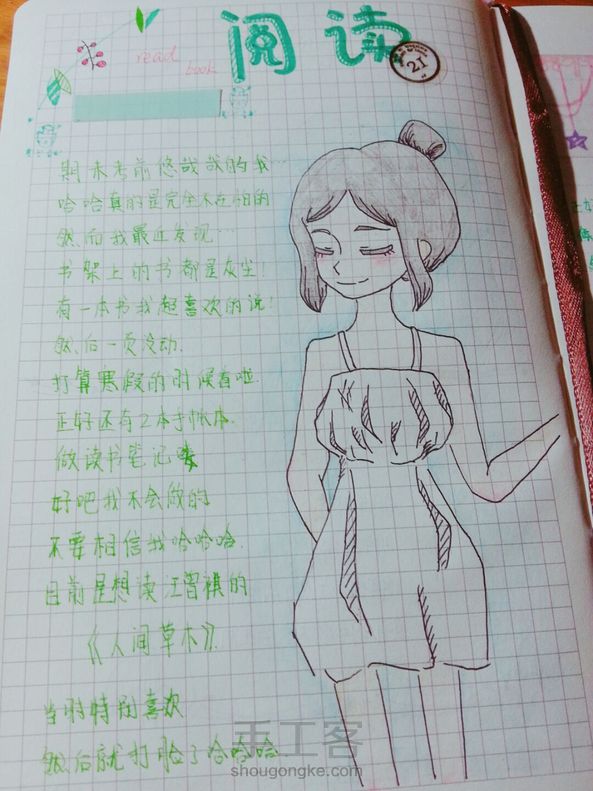 阅读
read
book
21
期末考前悠哉哉的我…
哈哈真的是完全不在怕的
然而我最近发现…
书架上的书都是灰尘!
有一本书我超喜欢的说!
然后一页没动.
打算寒假的时候看啦.
正好还有2本手帐本.
做读书笔记
好吧我不会做的
不要相信我哈哈哈.
目前是想读汪曾祺的
《人间草木》.
当时特别喜欢
然后就打脸了哈哈哈
手工客
shougongke.com